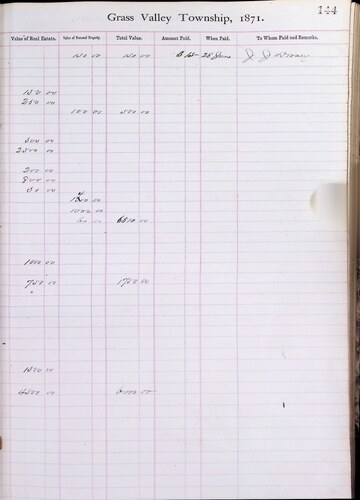 144
Grass Valley Township, 1871.
Value of Real Estate. Value of Personal Property. Total Value. Amount Paid. When Paid. To Whom Paid and Remarks.
150 00 150 00 25 June J J
150 00
250 00
100 00 500 00
500 00
2500 00
200 00
800 00
50 00
1000 00
60 00 6510 00
1000 00
750 00 1750 00
1500 00
4500 00 6000 00